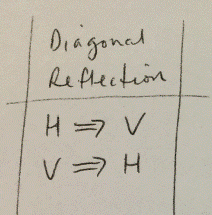 Diagonal
Reflection
H ⇒ V
V ⇒ H